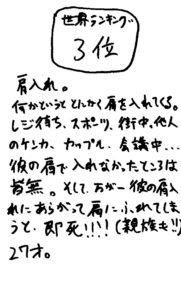 世界ランキング
3位
肩入れ。
何かというととにかく肩を入れてくる。
レジ待ち、スポーツ、街中、他人
のケンカ、カップル、会議中...
彼の肩で入れなかったところは
皆無。そして、万が一彼の肩入
れにあらがって肩にふれてしま
うと、即死!!!!(親族も!!)
27才。